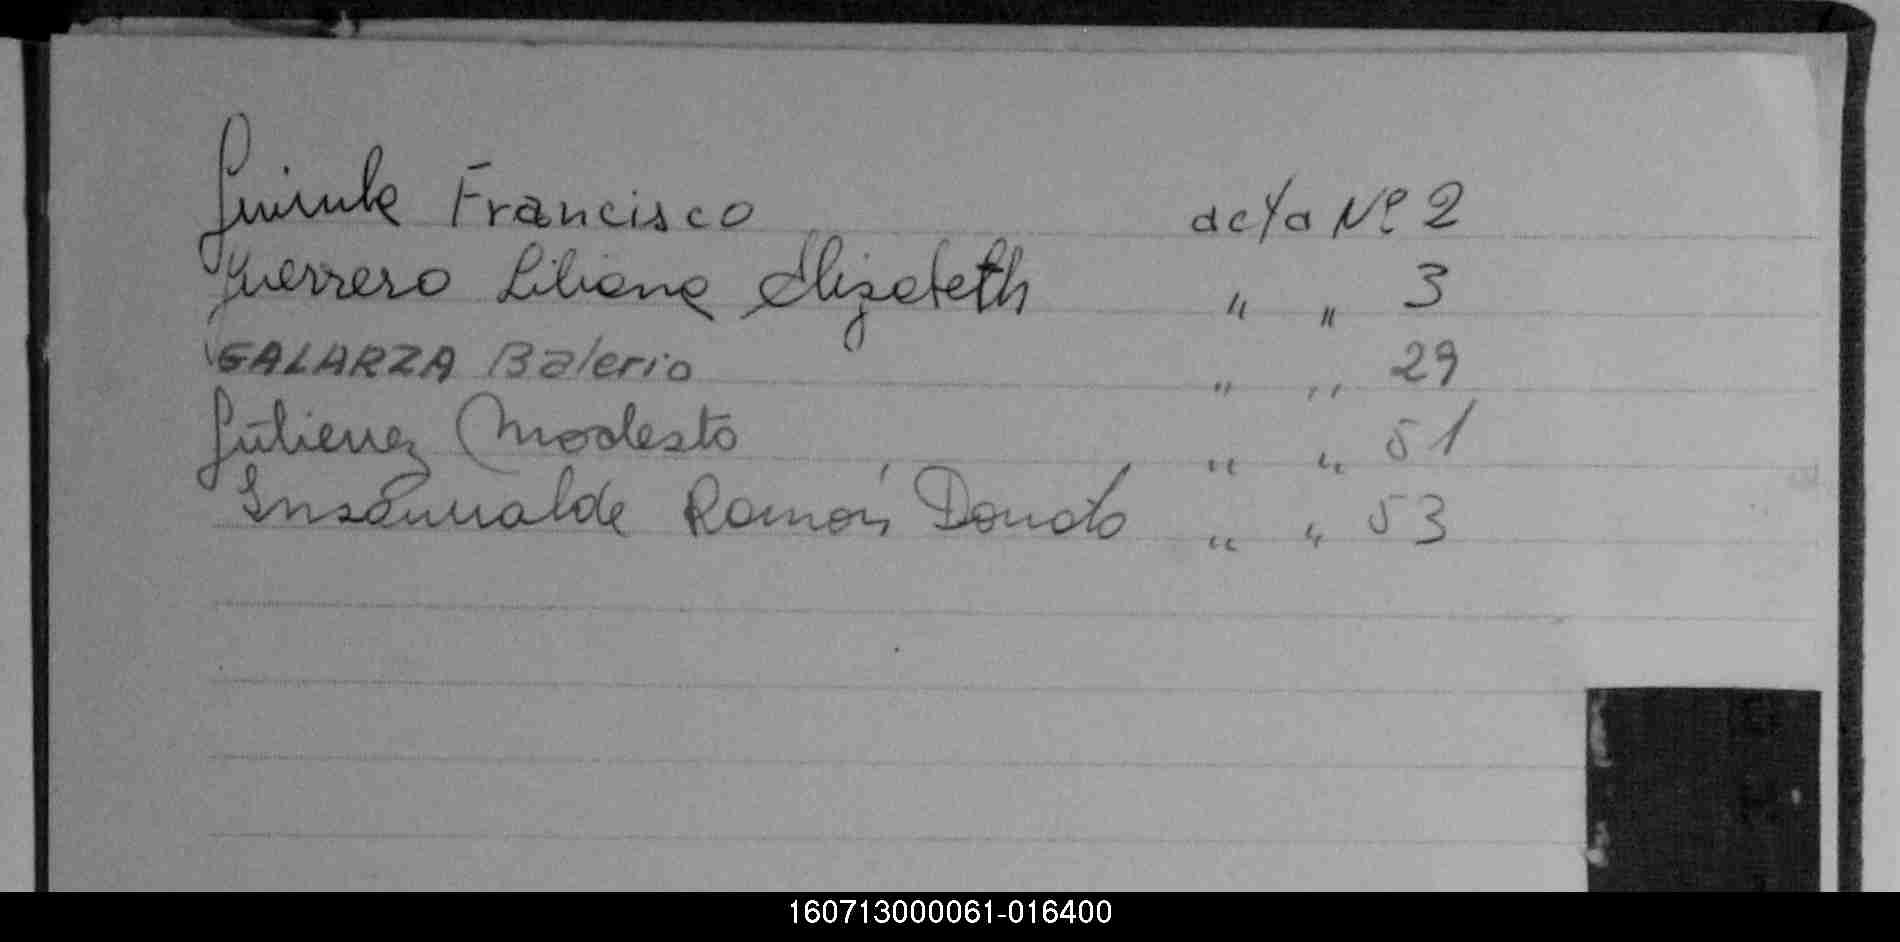 Francisco acta Nº 2
Guerrero Liliana Elizabeth " " 3
GALARZA Balerio " " 29
Gutierrez Modesto " " 51
Insaurralde Ramón Donato " " 53
160713000061-016400